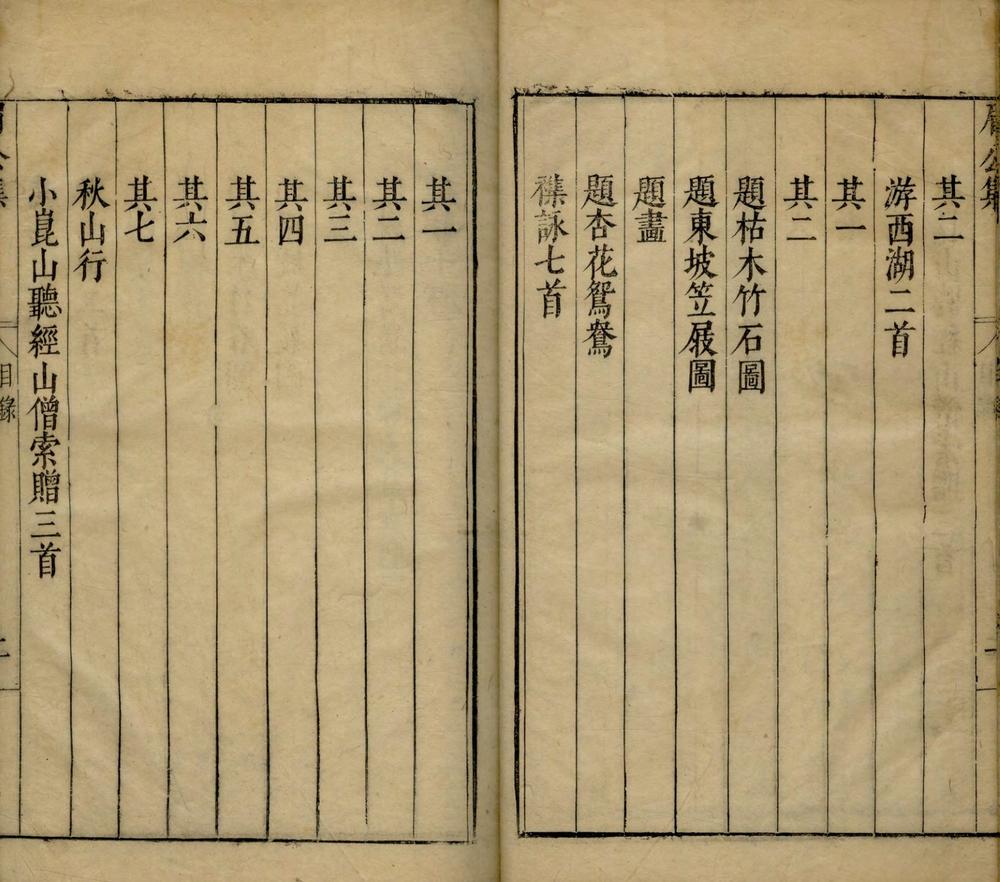 其二
游西湖二首
其一
其二
題枯木竹石圖
題東坡笠屐圖
題畫
題杏花鴛鴦
襍詠七首
其一
其二
其三
其四
其五
其六
其七
秋山行
小崑山聽經山僧索贈三首
目錄